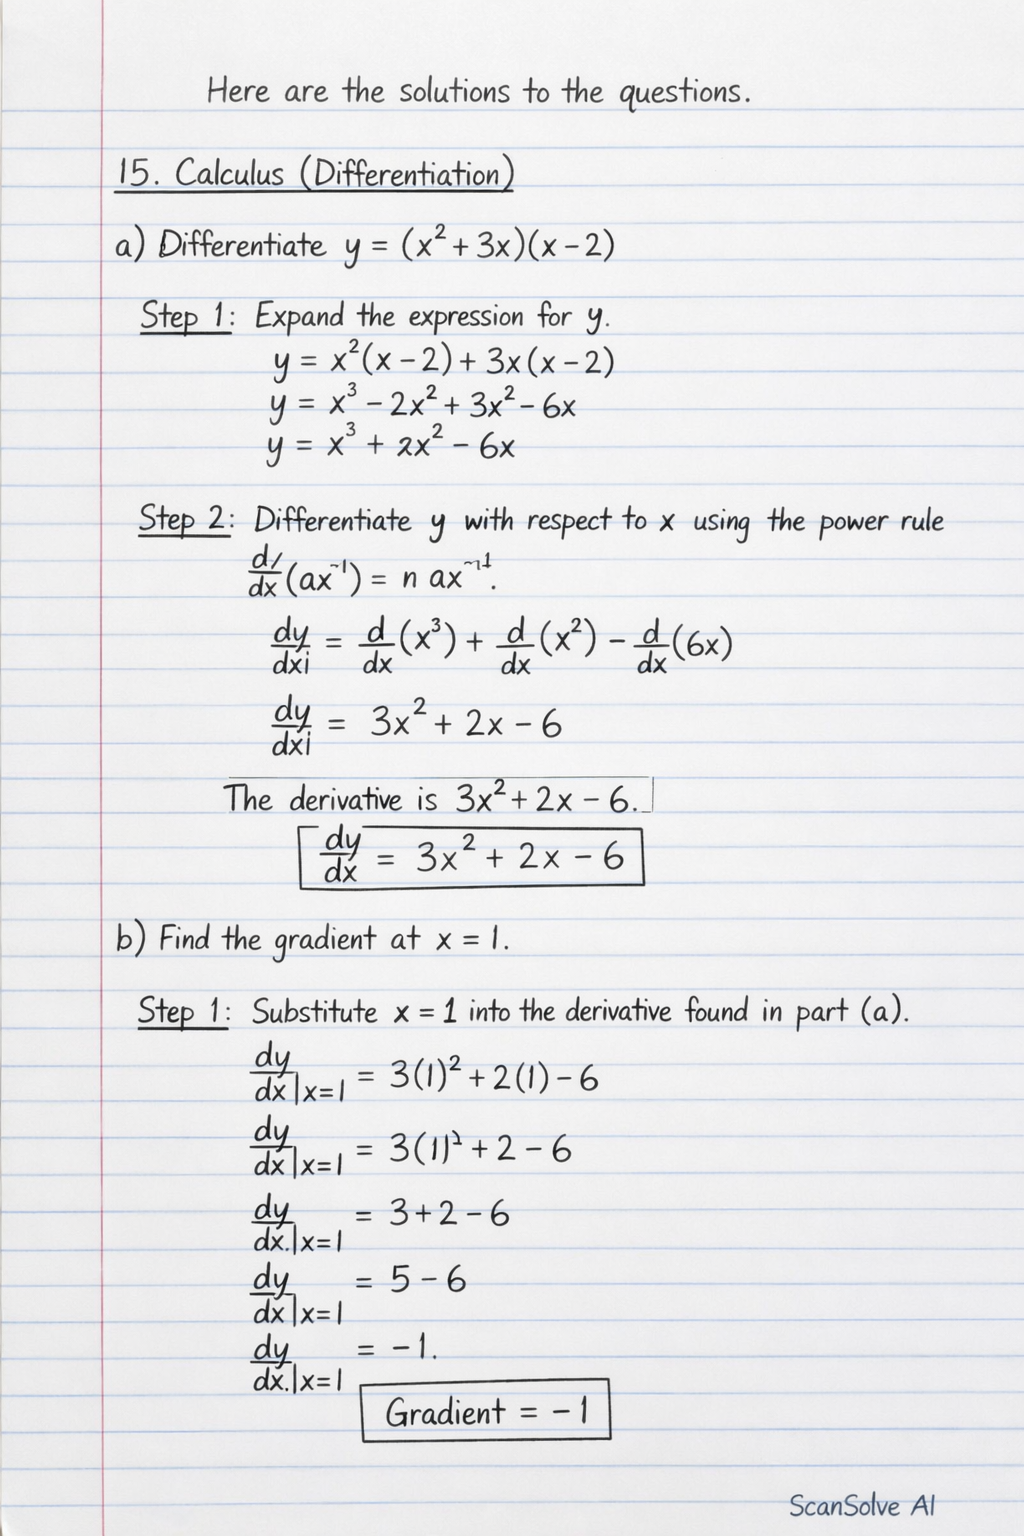 Here are the solutions to the questions.
15. Calculus (Differentiation)
a) Differentiate y = (x² + 3x)(x - 2)
Step 1: Expand the expression for y.
y = x²(x - 2) + 3x(x - 2)
y = x³ - 2x² + 3x² - 6x
y = x³ + 2x² - 6x
Step 2: Differentiate y with respect to x using the power rule
d/dx (ax⁻¹) = n ax⁻¹.
dy/dxi = d/dx (x³) + d/dx (x²) - d/dx (6x)
dy/dxi = 3x² + 2x - 6
The derivative is 3x² + 2x - 6.
dy/dx = 3x² + 2x - 6
b) Find the gradient at x = 1.
Step 1: Substitute x = 1 into the derivative found in part (a).
dy/dx|x=1 = 3(1)² + 2(1) - 6
dy/dx|x=1 = 3(1)² + 2 - 6
dy/dx.|x=1 = 3 + 2 - 6
dy/dx|x=1 = 5 - 6
dy/dx.|x=1 = -1.
Gradient = -1
ScanSolve AI